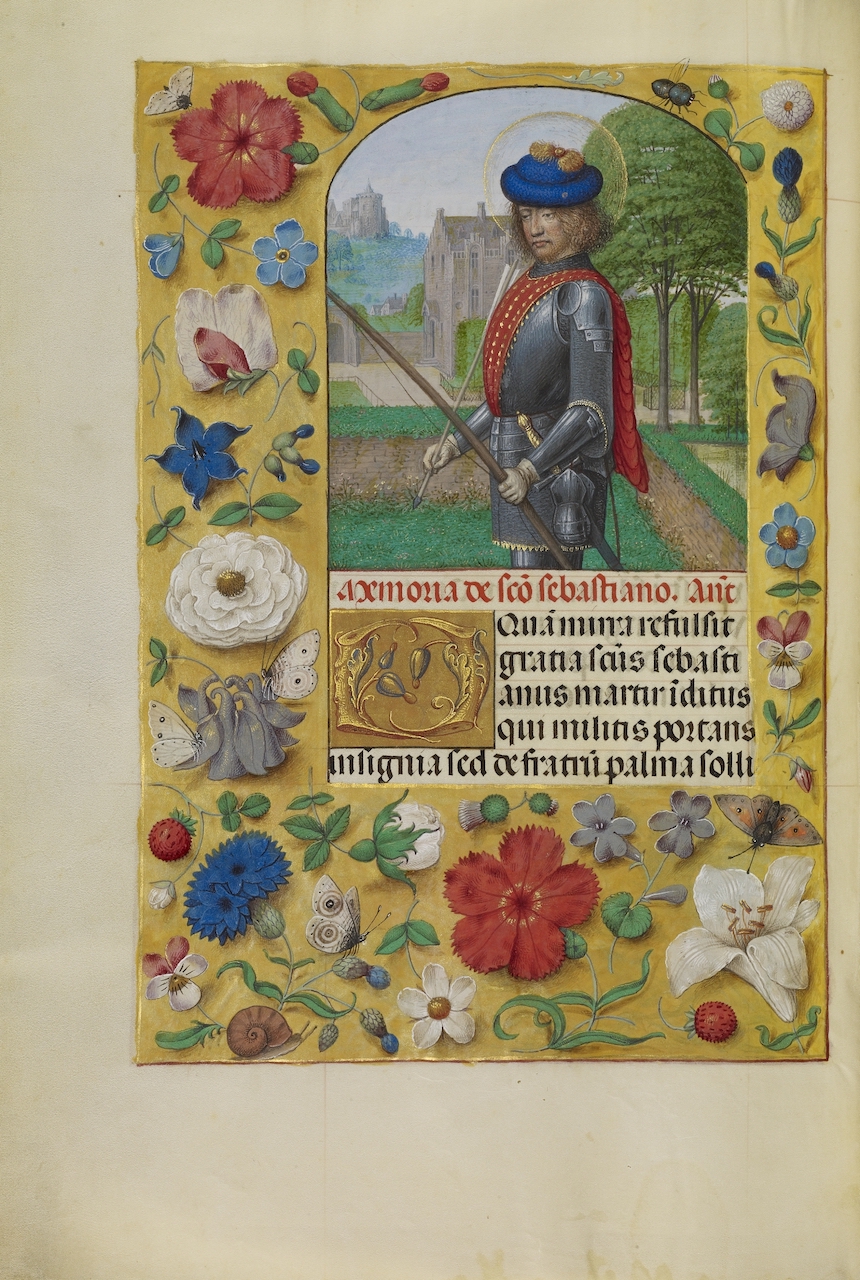 Memoria de scō sebastiano. Añt
Quā mira refulsit
gratia scūs sebasti
anus martir īclitus
qui militis portans
insignia sed de fratrū palma solli